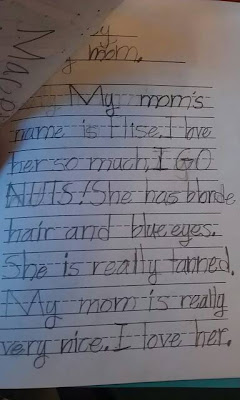 y
mom.
My mom's
name is Elise. I love
her so much, I GO
NUTS! She has blonde
hair and blue eyes.
She is really tanned.
My mom is really
very nice. I love her.